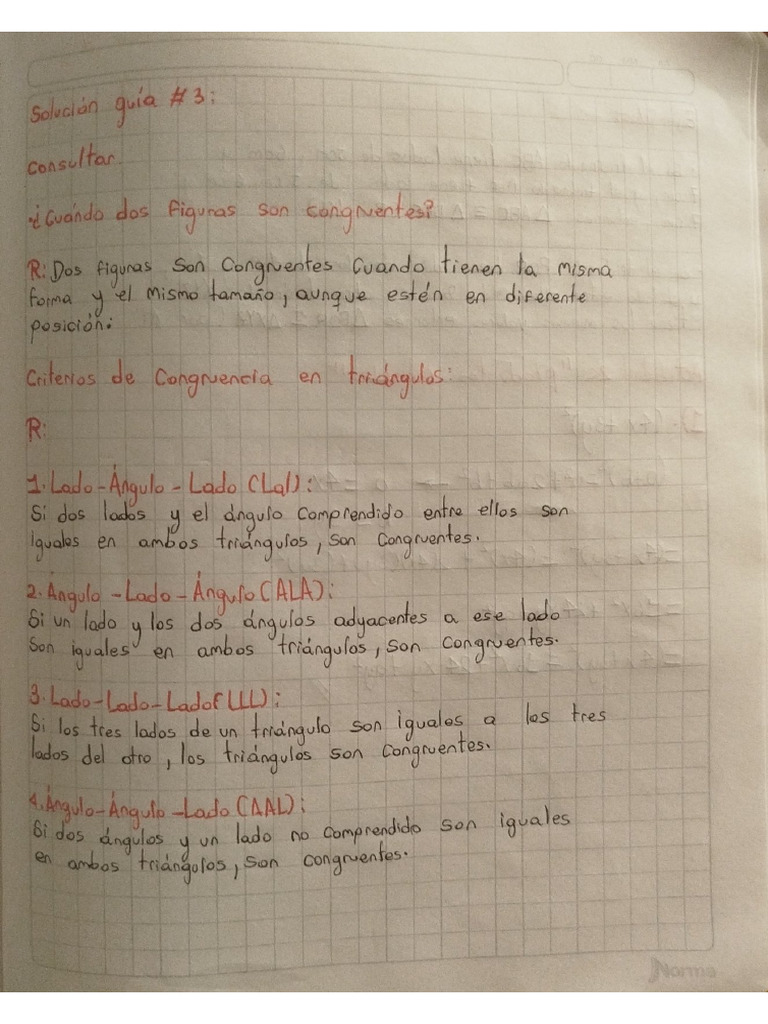 Solución guía # 3:
Consultar
¿Cuándo dos figuras son congruentes?
R: Dos figuras Son Congruentes Cuando tienen la misma
forma y el mismo tamaño, aunque estén en diferente
posición.
Criterios de Congruencia en triángulos:
R:
1. Lado-Ángulo-Lado (Lal):
Si dos lados y el ángulo comprendido entre ellos son
iguales en ambos triángulos, son congruentes.
2. Ángulo-Lado-Ángulo (ALA):
Si un lado y los dos ángulos adyacentes a ese lado
Son iguales en ambos triángulos, son congruentes.
3. Lado-Lado-Lado (LLL):
Si los tres lados de un triángulo son iguales a los tres
lados del otro, los triángulos son congruentes.
4. Ángulo-Ángulo-Lado (AAL):
Si dos ángulos y un lado no comprendido son iguales
en ambos triángulos, son congruentes.
Norma